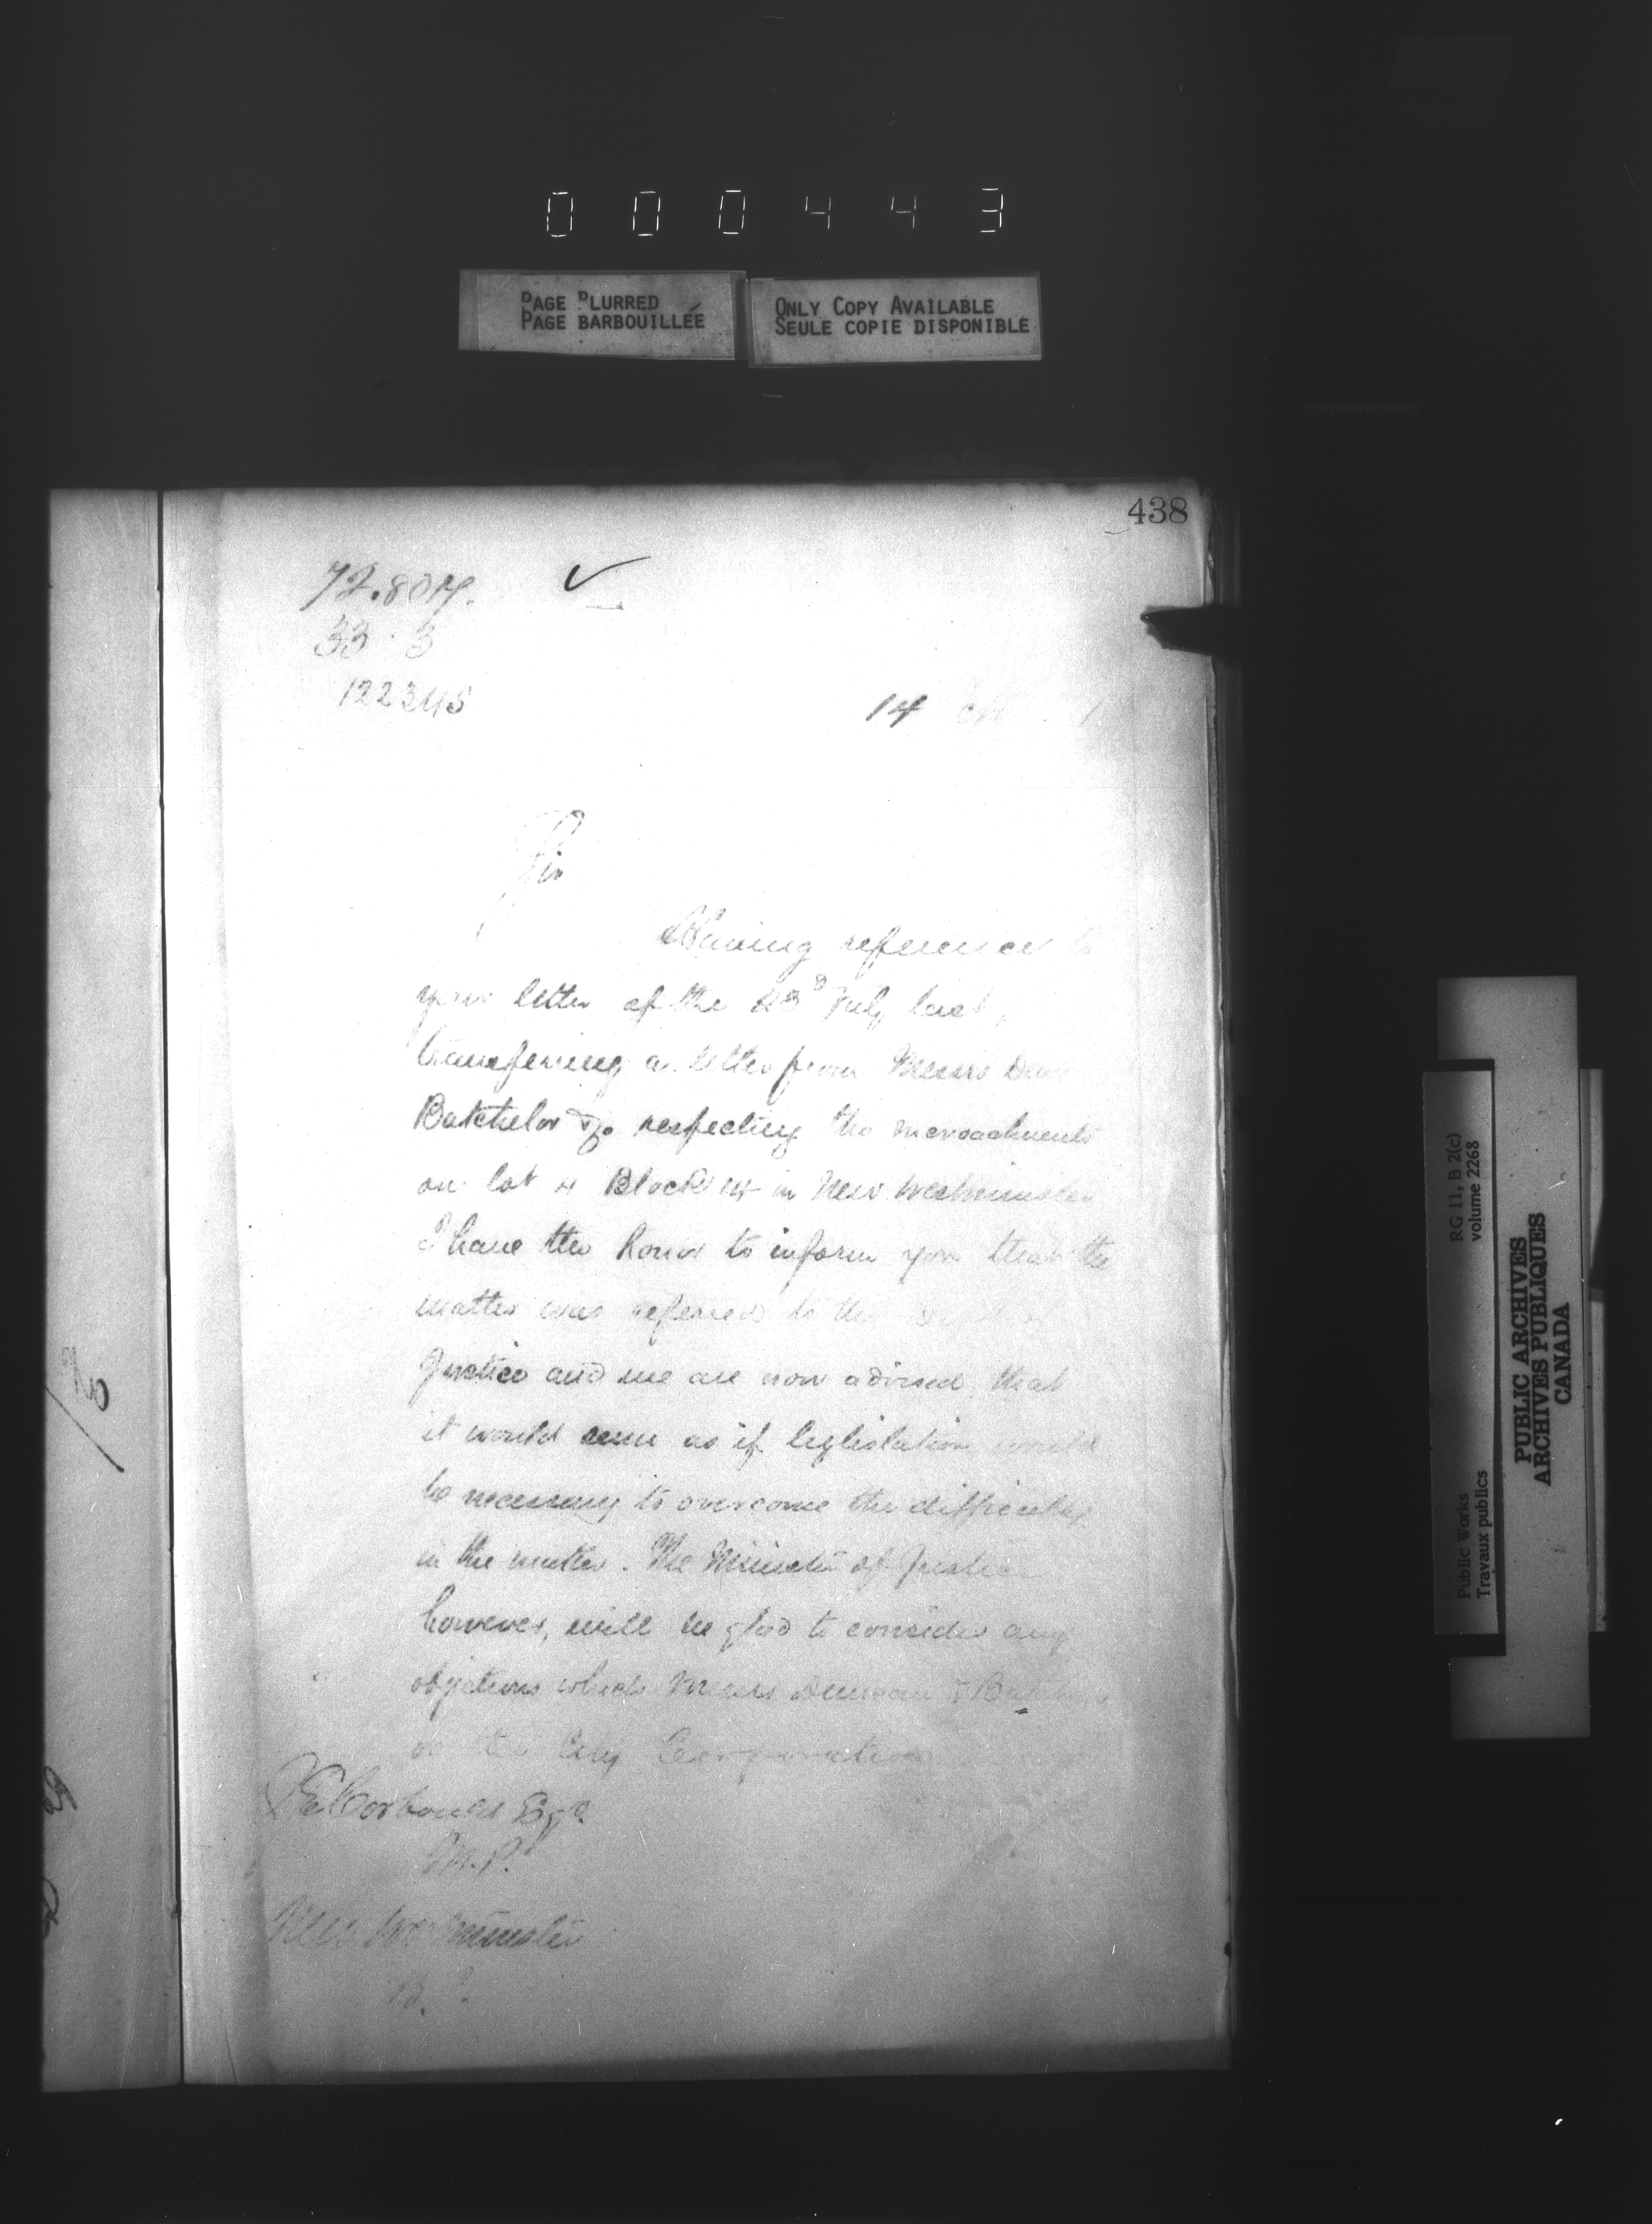 000443
PAGE BLURRED
PAGE BARBOUILLÉE
ONLY COPY AVAILABLE
SEULE COPIE DISPONIBLE
438
33 3
122345
14
Sir
Having reference to
your letter of the 23d July last,
transferring a letter from Messrs
Batchelor &c respecting the encroachments
on lot 4 Block in New Westminster
I have the honor to inform you that the
matter was referred to the
Justice and we are now advised that
it would seem as if legislation would
be necessary to overcome the difficulty
in the matter. The Minister of Justice
however, will be glad to consider any
objections which Messrs Duncan & Batchelor
or the City Corporation
Corbould Esqr.
M.P.
New Westminster
B.
RG 11, B 2(c)
volume 2268
Public Works
Travaux publics
PUBLIC ARCHIVES
ARCHIVES PUBLIQUES
CANADA